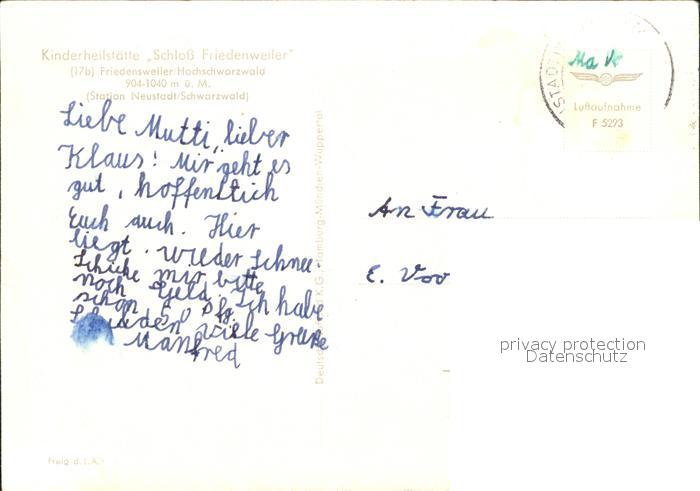 Kinderheilstätte „Schloß Friedenweiler"
(17b) Friedensweiler/Hochschwarzwald
904-1040 m ü. M.
(Station Neustadt/Schwarzwald)
Liebe Mutti, lieber
Klaus! Mir geht es
gut, hoffentlich
Euch auch. Hier
liegt. wieder Schnee.
Schicke mir bitte
noch Geld. Ich habe
schon 50 Pfg.
Schulden viele Grüße
Manfred
Freig. d. L.A.
Hamburg-München-Wuppertal
STADT
Luftaufnahme
F 5293
An Frau
E. Voo
privacy protection
Datenschutz